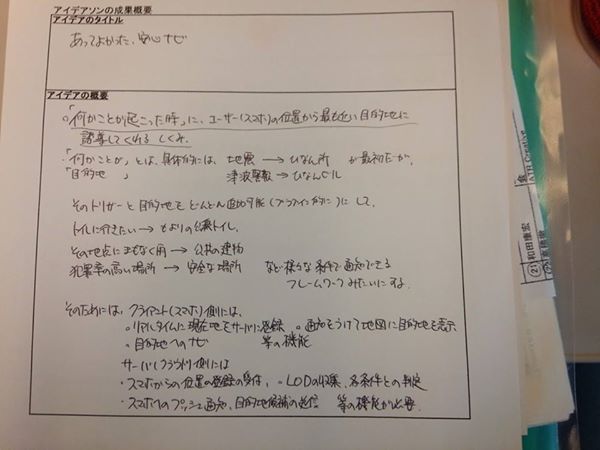 アイデアソンの成果概要
アイデアのタイトル
あってよかった、安心ナビ
アイデアの概要
。「何かことが起こった時」に、ユーザー(スマホ)の位置から最も近い目的地に
誘導してくれる しくみ。
「何かことが」とは、具体的には、地震 → ひなん所 が最初だが、
「目的地」 津波警報 → ひなんビル
そのトリガーと目的地をどんどん追加可能(プラグイン的に)にして、
トイレに行きたい → もよりの公衆トイレ、
その地点にまもなく雨 → 公共の建物
犯罪率の高い場所 → 安全な場所 など様々な条件で通知できる
フレームワークみたいにする。
そのためには、クライアント(スマホ)側には、
。リアルタイムに現在地をサーバに登録 。通知をうけて地図に目的地を表示
・目的地へのナビ 等の機能
サーバ(クラウド)側には
・スマホからの位置の登録の受付、。LODの収集、各条件との判定
・スマホへのプッシュ通知、目的地候補の送信 等の機能が必要。
(2) 和田康宏
ATR Creative